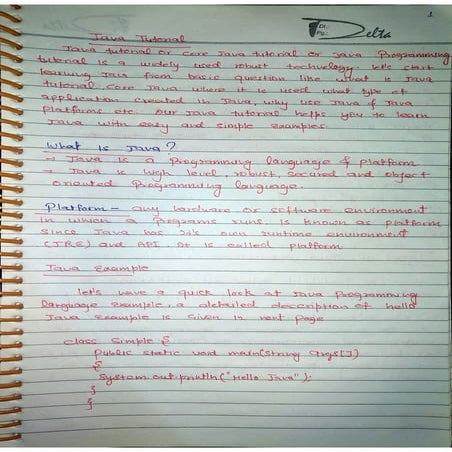 1
Dt.
Pg.
Delta
Java Tutorial
Java tutorial or core Java tutorial or Java Programming
tutorial is a widely used robust technology. let's start
learning Java from basic question like what is Java
tutorial, core Java where it is used what type of
application created in Java, why use Java & Java
Platforms etc. our Java tutorial helps you to learn
Java with easy and simple examples.
What is Java?
→ Java is a Programming language & platform
→ Java is high level, robust, secured and object
oriented Programming language.
Platform - any hardware or software environment
in which a Programs runs is known as platform
since Java has it's own runtime environment
(JRE) and API. It is called platform
Java Example
let's have a quick look at Java Programming
language example. a detailed description of Hello
Java example is given in next page
class Simple {
Public static void main(String args[])
{
System.out.println("Hello Java");
}
}